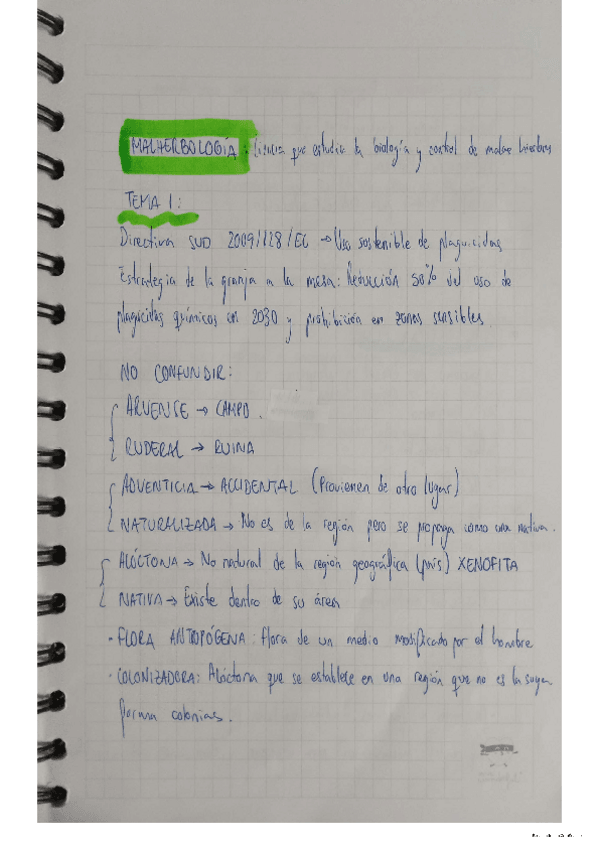 MALHERBOLOGÍA: Ciencia que estudia la biología y control de malas hierbas
TEMA 1:
Directiva SUD 2009/128/EC → Uso sostenible de plaguicidas
Estrategia de la granja a la mesa: Reducción 50% del uso de
plaguicidas químicos en 2030 y prohibición en zonas sensibles.
NO CONFUNDIR:
ARVENSE → CAMPO.
RUDERAL → RUINA
ADVENTICIA → ACCIDENTAL (Provienen de otro lugar)
NATURALIZADA → No es de la región pero se propaga como una nativa.
ALÓCTONA → No natural de la región geográfica (país) XENOFITA
NATIVA → Existe dentro de su área
· FLORA ANTROPÓGENA: flora de un medio modificado por el hombre
· COLONIZADORA: Alóctona que se establece en una región que no es la suya
forma colonias.